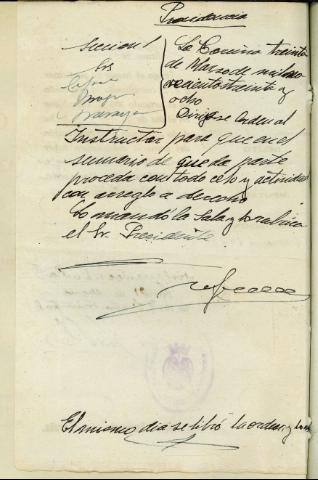 Providencia
Seccion 1
La Coruña treinta
de Marzo de mil no
vecientos treinta y
ocho
Dirijase orden al
Instructor para que en el
sumario de que da parte
proceda con todo celo y actividad
con arreglo a derecho
Lo mandó la Sala y rubrica
el Sr. Presidente
El mismo dia se libró la orden, y